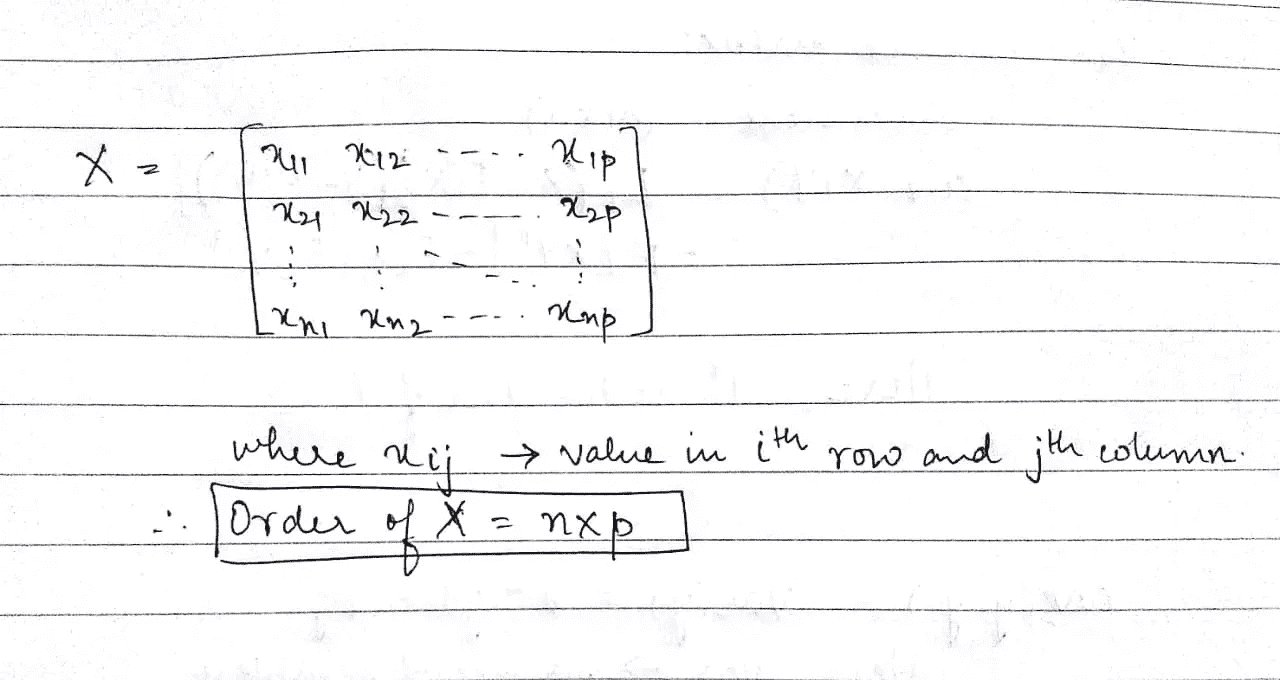 X = [ x11 x12 ---.. x1p
x21 x22 -----. x2p
⋮ ⋮ ⋱ ⋮
xn1 xn2 ---.. xnp ]
where xij → value in ith row and jth column.
∴ Order of X = n×p